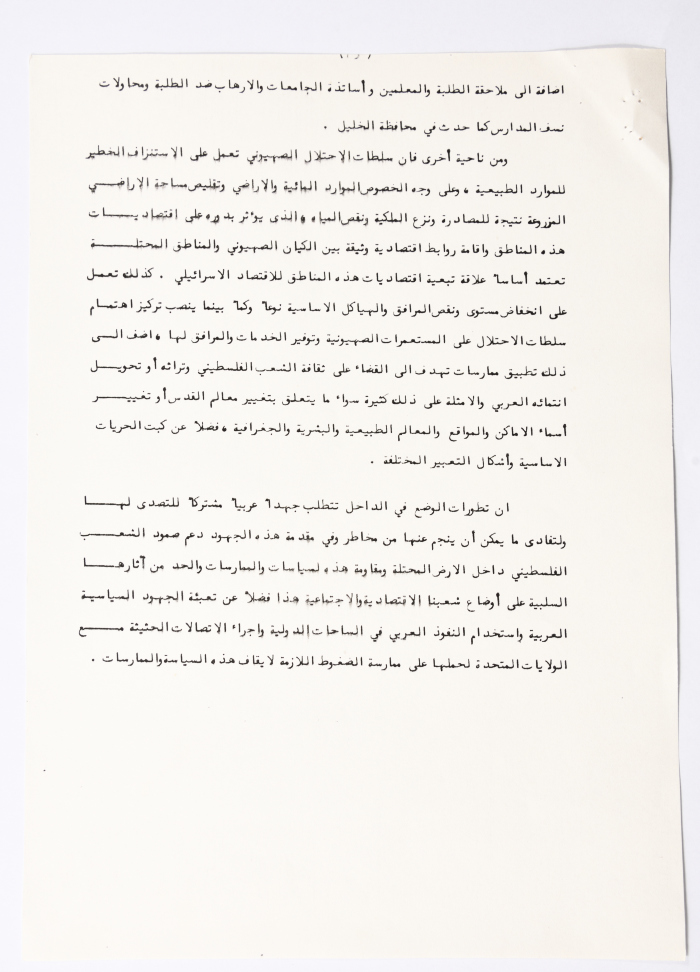 اضافة الى ملاحقة الطلبة والمعلمين وأساتذة الجامعات والارهاب ضد الطلبة ومحاولات
نسف المدارس كما حدث في محافظة الخليل .
ومن ناحية أخرى فان سلطات الاحتلال الصهيوني تعمل على الاستنزاف الخطير
للموارد الطبيعية ، وعلى وجه الخصوص الموارد المائية والاراضي وتقليص مساحة الاراضـــي
المزروعة نتيجة للمصادرة ونزع الملكية ونقص المياه ، والذى يؤثر بدوره على اقتصاديـــات
هذه المناطق واقامة روابط اقتصادية وثيقة بين الكيان الصهيوني والمناطق المحتلـــــة
تعتمد أساسا علاقة تبعية اقتصاديات هذه المناطق للاقتصاد الاسرائيلي . كذلك تعمل
على انخفاض مستوى ونقص المرافق والهياكل الاساسية نوعا وكما بينما ينصب تركيز اهتمام
سلطات الاحتلال على المستعمرات الصهيونية وتوفير الخدمات والمرافق لها ، اضف الـــى
ذلك تطبيق ممارسات تهدف الى القضاء على ثقافة الشعب الفلسطيني وتراثه أو تحويـــل
انتمائه العربي والامثلة على ذلك كثيرة سواء ما يتعلق بتغيير معالم القدس أو تغييـــر
أسماء الاماكن والمواقع والمعالم الطبيعية والبشرية والجغرافية ، فضلا عن كبت الحريات
الاساسية وأشكال التعبير المختلفة .
ان تطورات الوضع في الداخل تتطلب جهدا عربيا مشتركا للتصدى لهـــا
ولتفادى ما يمكن أن ينجم عنها من مخاطر وفي مقدمة هذه الجهود دعم صمود الشعـــب
الفلسطيني داخل الارض المحتلة ومقاومة هذه لسياسات والممارسات والحد من آثارهـــا
السلبية على أوضاع شعبنا الاقتصادية والاجتماعية هذا فضلا عن تعبئة الجهود السياسية
العربية واستخدام النفوذ العربي في الساحات الدولية واجراء الاتصالات الحثيثة مـــع
الولايات المتحدة لحملها على ممارسة الضغوط اللازمة لايقاف هذه السياسة والممارسات .